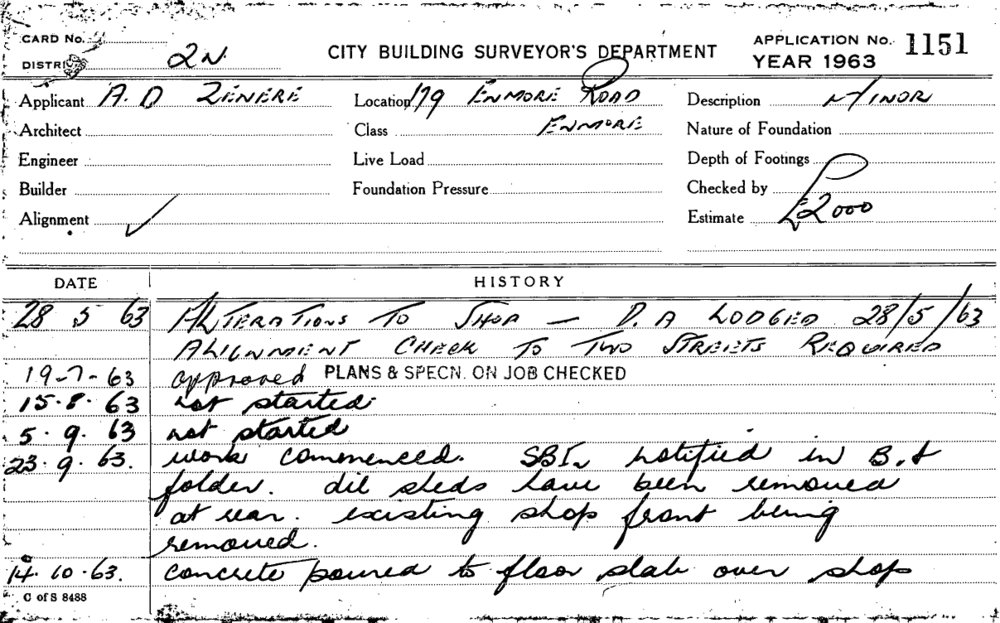 CARD No.
DISTRICT 2N.
CITY BUILDING SURVEYOR'S DEPARTMENT
APPLICATION No. 1151
YEAR 1963
Applicant A. D ZENERE
Location 179 ENMORE ROAD
Description MINOR
Architect
Class ENMORE
Nature of Foundation
Engineer
Live Load
Depth of Footings
Builder
Foundation Pressure
Checked by
Alignment ✓
Estimate £2000
DATE HISTORY
28 5 63 ALTERATIONS TO SHOP — D. A LODGED 28/5/63
ALIGNMENT CHECK TO TWO STREETS REQUIRED
19-7-63 approved PLANS & SPECN. ON JOB CHECKED
15.8.63 not started
5.9.63 not started
23.9.63. work commenced. notified in B.A
folder. old sheds have been removed
at rear. existing shop front being
removed.
14.10.63. concrete poured to floor slab over shop
C of S 8488